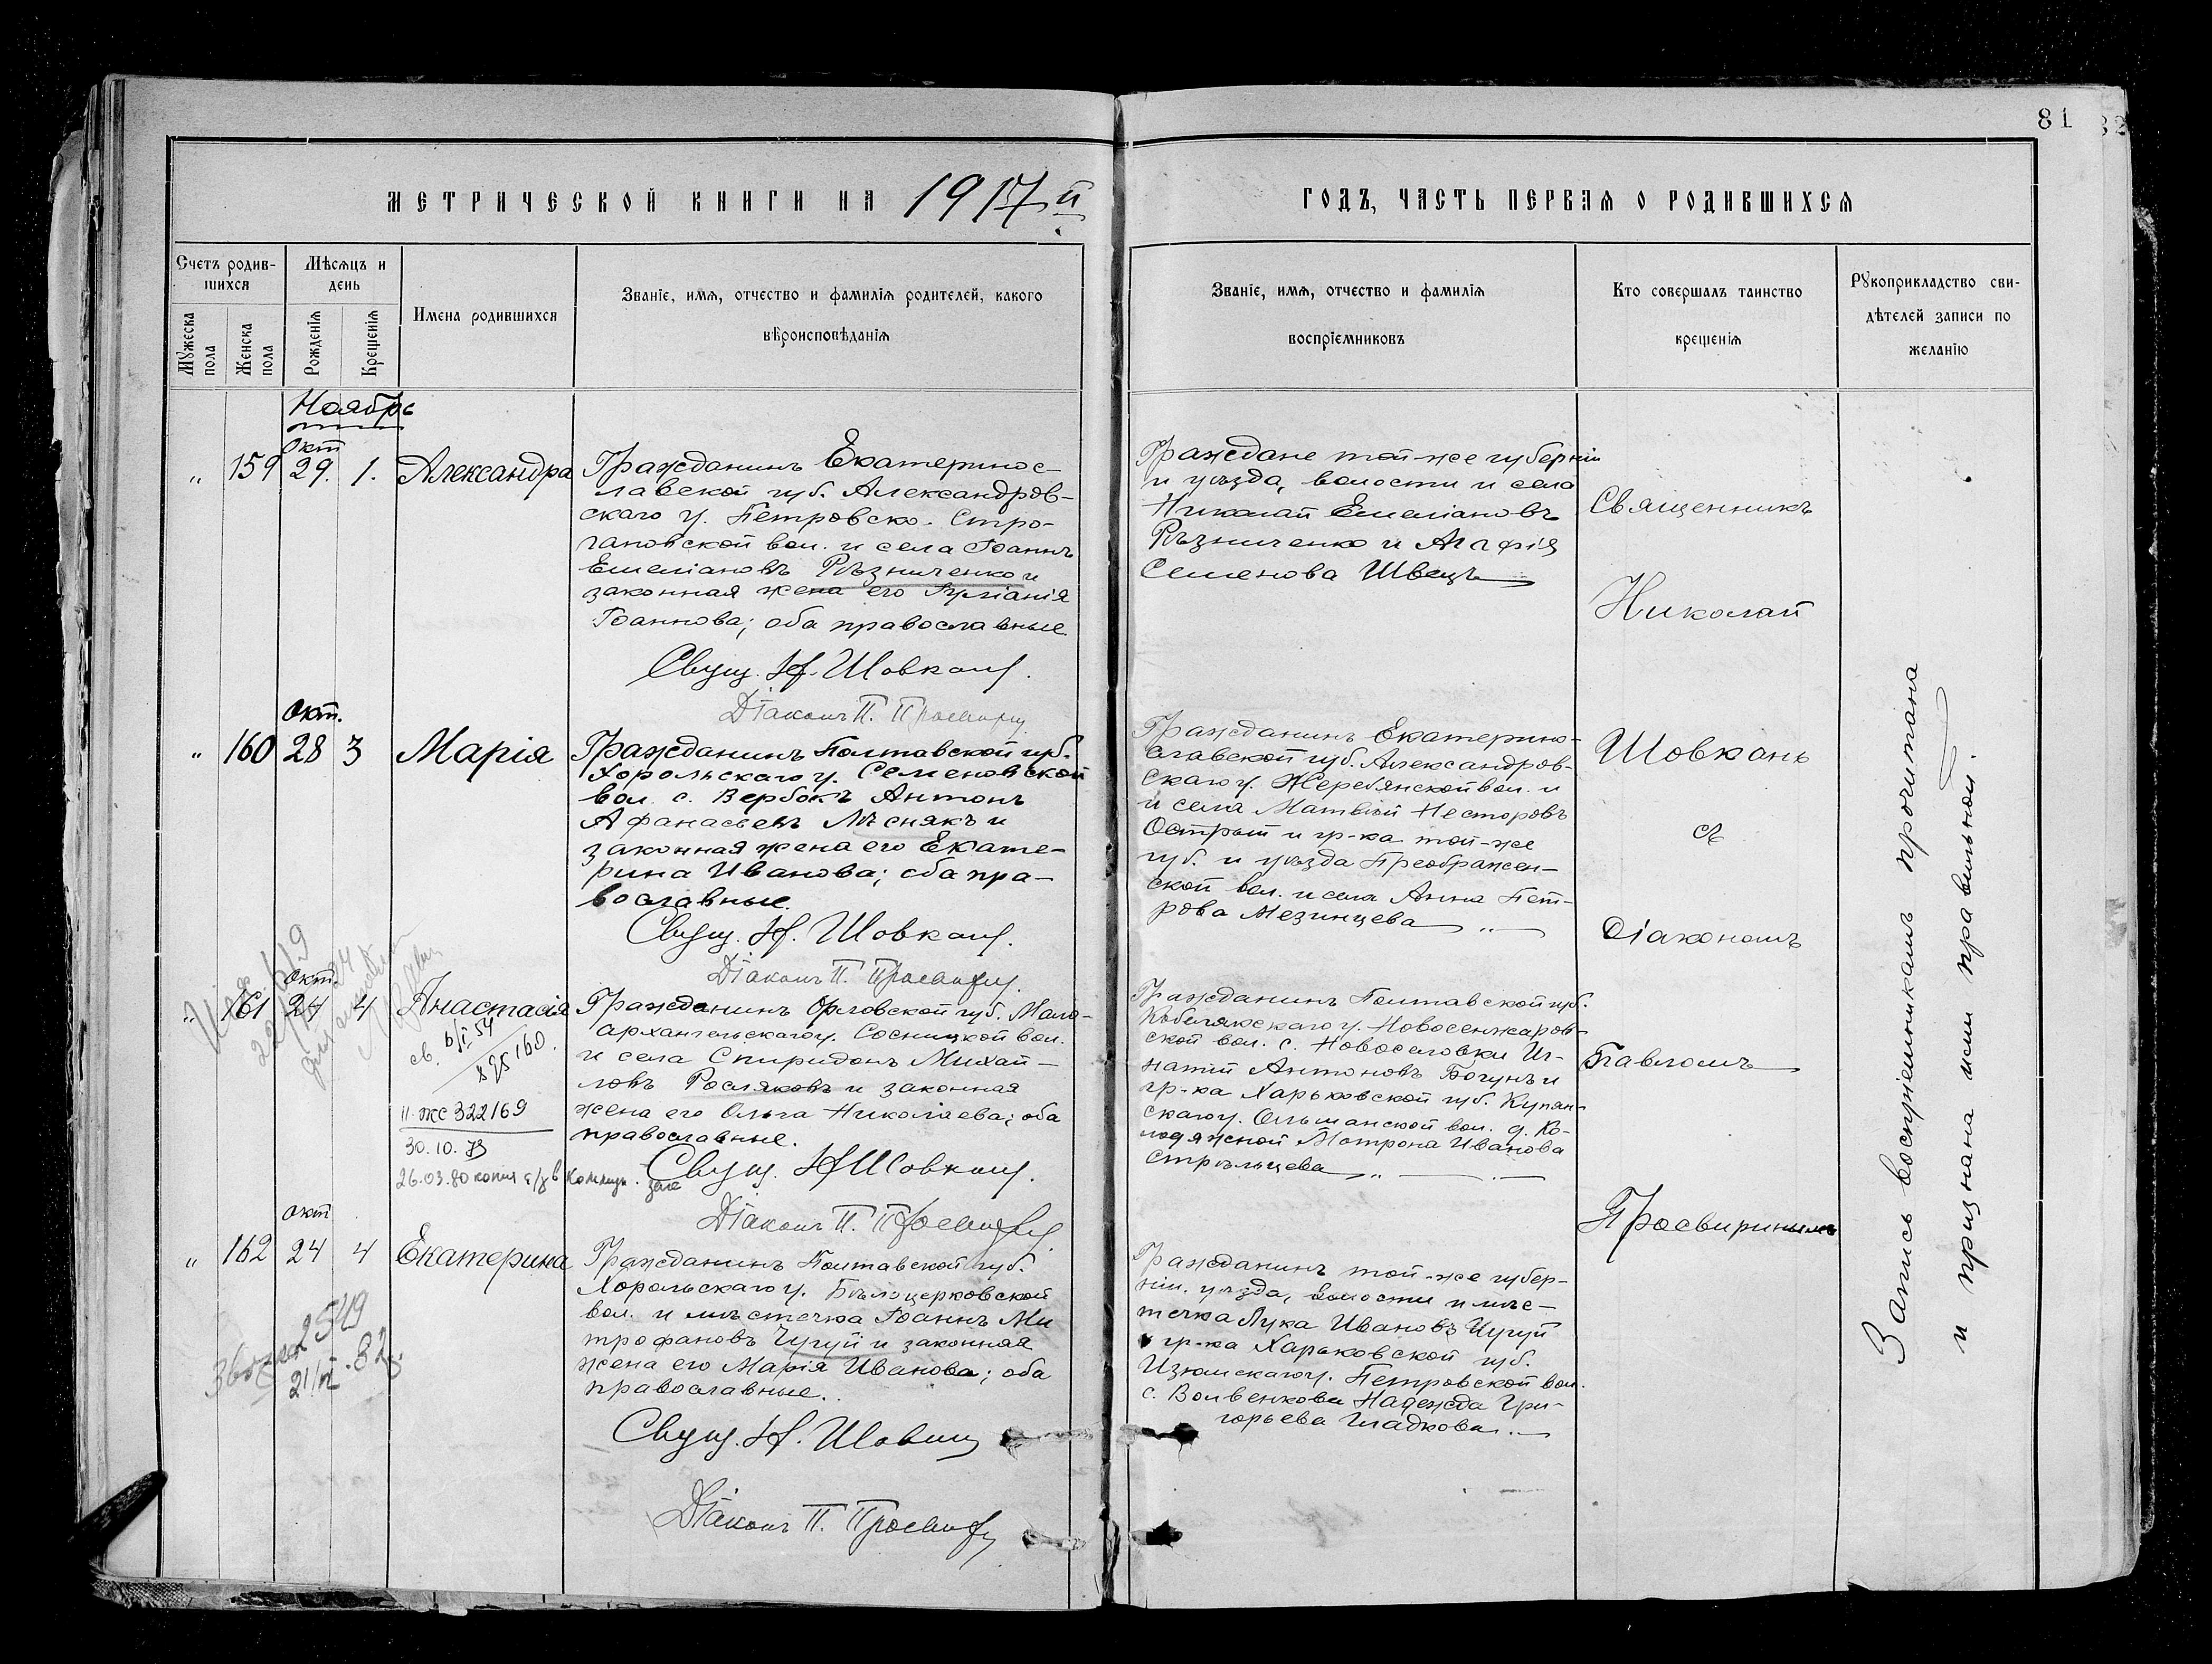 81
МЕТРИЧЕСКОЙ КНИГИ НА 1917 й
ГОДЪ, ЧАСТЬ ПЕРВАЯ О РОДИВШИХСЯ
Счетъ родив-
шихся
Мужеска пола
Женска пола
Мѣсяцъ и
день
Рожденія
Крещенія
Имена родившихся
Званіе, имя, отчество и фамилія родителей, какого
вѣроисповѣданія
Званіе, имя, отчество и фамилія
воспріемниковъ
Кто совершалъ таинство
крещенія
Рукоприкладство сви-
дѣтелей записи по
желанію
Ноябрь
Окт
„ 159 29. 1. Александра
Гражданинъ Екатеринос-
лавской губ. Александров-
скаго у. Петровско-Стро-
гановской вол. и села Іоаннъ
Емеліановъ Рѣзниченко и
законная жена его
Іоаннова; оба православные
Свящ. Н. Шовкань.
Діаконъ П. Просвиринъ
Граждане той-же губерніи
и уѣзда, волости и села
Николай Емеліановъ
Рѣзниченко и Агафія
Семенова Швецъ
Окт.
„ 160 28 3 Марія
Гражданинъ Полтавской губ.
Хорольскаго у. Семеновской
вол. с. Вербокъ Антонъ
Афанасьевъ Лѣснякъ и
законная жена его Екате-
рина Иванова; оба пра-
вославные.
Свящ. Н. Шовкань.
Діаконъ П. Просвиринъ.
Гражданинъ Екатерино-
славской губ. Александров-
скаго у. Жеребянской вол. и
и села Матвѣй Несторовъ
Острый и гр-ка той-же
губ. и уѣзда Преображен-
ской вол. и села Анна Пет-
рова Мезинцева „
Окт.
„ 161 24 4 Анастасія
Гражданинъ Орловской губ. Мало-
архангельскаго у. Сосницкой вол.
и села Спиридонъ Михай-
ловъ Росляковъ и законная
жена его Ольга Николаева; оба
православные.
Свящ. Н Шовкань.
Діаконъ П. Просвиринъ.
св. 6/I 54
160.
II-жс 322169
30.10.73
26.03.80 копия
Гражданинъ Полтавской губ.
Кобелякскаго у. Новосенжаров-
ской вол. с. Новоселовки Иг-
натій Антоновъ Богунъ и
гр-ка Харьковской губ. Купян-
скаго у. Ольшанской вол. д. Ко-
лодяжной Матрона Иванова
Стрѣльцева „
окт
„ 162 24 4 Екатерина
Гражданинъ Полтавской губ.
Хорольскаго у. Бѣлоцерковской
вол. и мѣстечка Іоаннъ Ми
трофановъ Чугуй и законная
жена его Марія Иванова; оба
православные.
Свящ. Н. Шовкань
Діаконъ П. Просвиринъ
2549
21/VI-82
Гражданинъ той-же губер-
ніи, уѣзда, волости и мѣс-
течка Лука Ивановъ Чугуй
гр-ка Харьковской губ.
Изюмскаго у. Петровской вол.
с. Волвенкова Надежда Гри-
горьева Гладкова.
Священникъ
Николай
Шовкань
съ
Діакономъ
Павломъ
Просвиринымъ
Запись воспріемникамъ прочитана
и признана ими правильной.